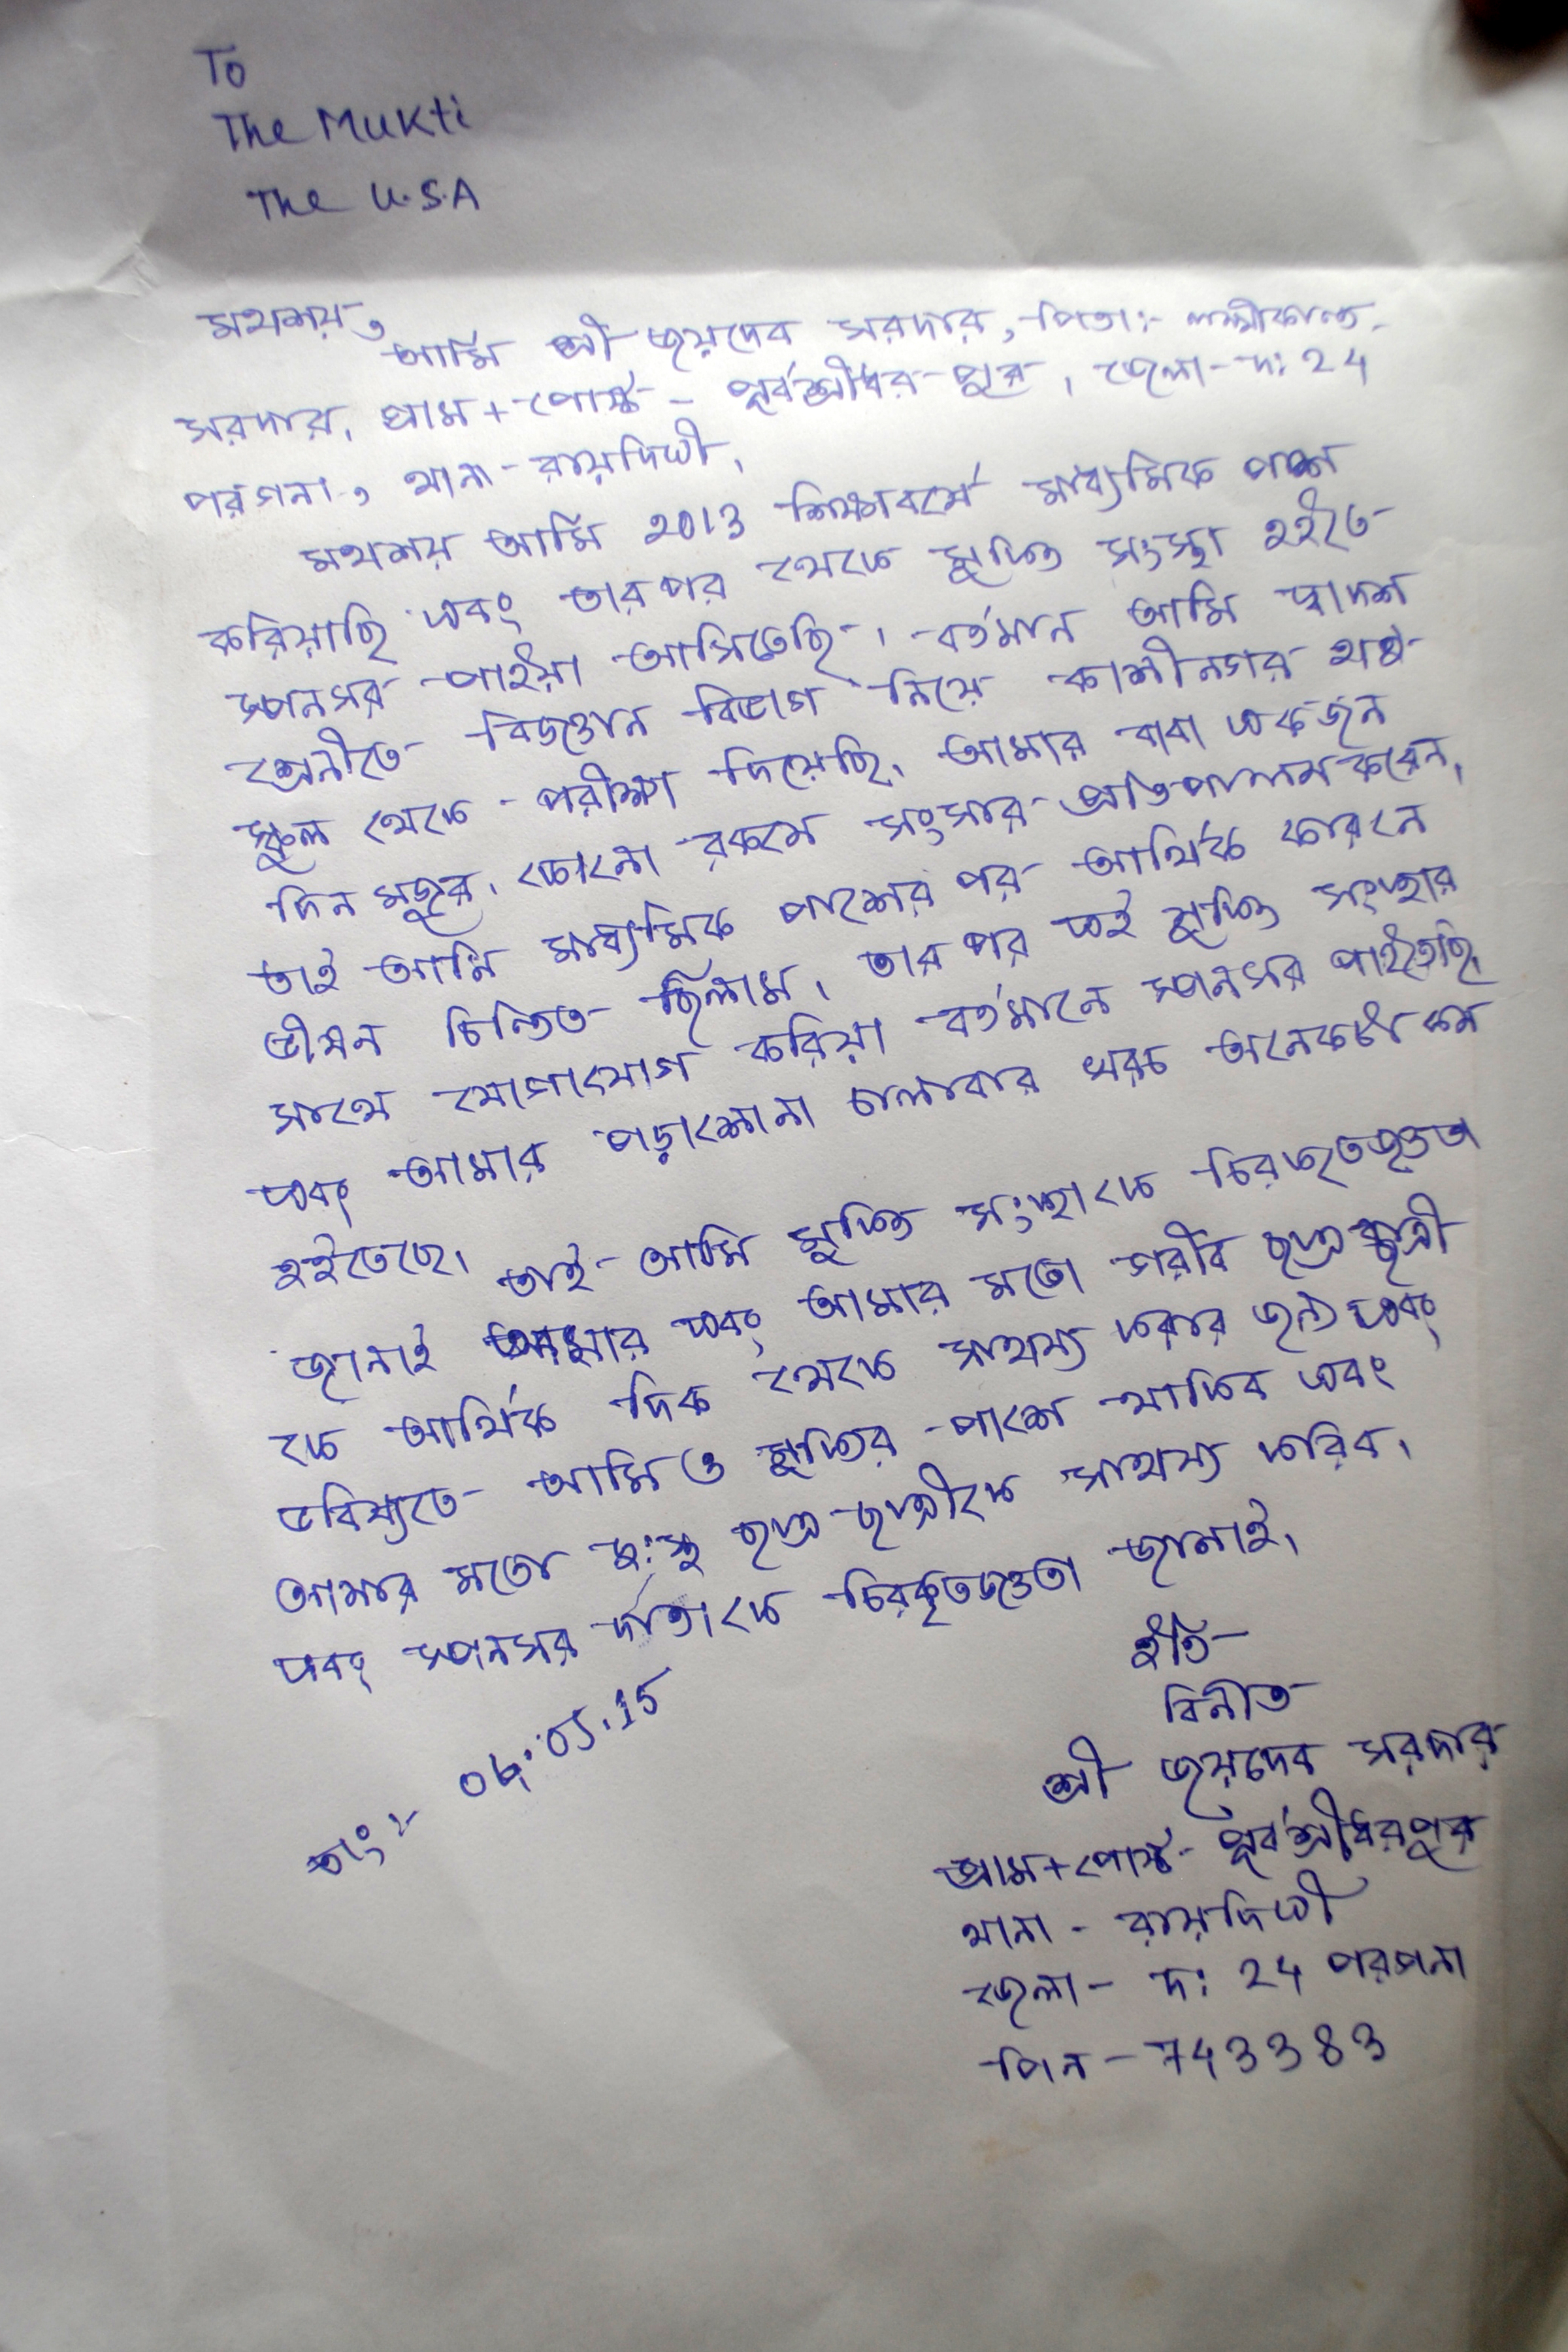 To
The Mukti
The U.S.A
মহাশয়,
আমি শ্রী জয়দেব সরদার, পিতা:- লক্ষ্মীকান্ত
সরদার, গ্রাম + পোস্ট - পূর্বশ্রীধরপুর, জেলা - দ: 24
পরগনা, থানা - রায়দিঘী,
মহাশয় আমি 2013 শিক্ষাবর্ষে মাধ্যমিক পাশ
করিয়াছি এবং তারপর থেকে মুক্তি সংস্থা হইতে
স্পনসর পাইয়া আসিতেছি। বর্তমান আমি দ্বাদশ
শ্রেনীতে বিজ্ঞান বিভাগ নিয়ে কাশীনগর হাই
স্কুল থেকে পরীক্ষা দিয়েছি, আমার বাবা একজন
দিন মজুর, কোনো রকমে সংসার প্রতিপালন করেন,
তাই আমি মাধ্যমিক পাশের পর আর্থিক কারনে
ভীষন চিন্তিত ছিলাম, তার পর এই মুক্তি সংস্থার
সাথে যোগাযোগ করিয়া বর্তমানে স্পনসর পাইতেছি,
এবং আমার পড়াশোনা চালাবার খরচ অনেকটা কম
হইতেছে।
তাই আমি মুক্তি সংস্থাকে চিরকৃতজ্ঞতা
জানাই আমার এবং আমার মতো গরীব ছাত্র ছাত্রী
কে আর্থিক দিক থেকে সাহায্য করার জন্য এবং
ভবিষ্যতে আমি ও মুক্তির পাশে থাকিব এবং
আমার মতো দু:স্থ ছাত্র ছাত্রীকে সাহায্য করিব,
এবং স্পনসর দাতাকে চিরকৃতজ্ঞতা জানাই,
ইতি
বিনীত
শ্রী জয়দেব সরদার
তাং:- 04.05.15
গ্রাম + পোস্ট - পূর্বশ্রীধরপুর
থানা - রায়দিঘী
জেলা - দ: 24 পরগনা
পিন - 743383